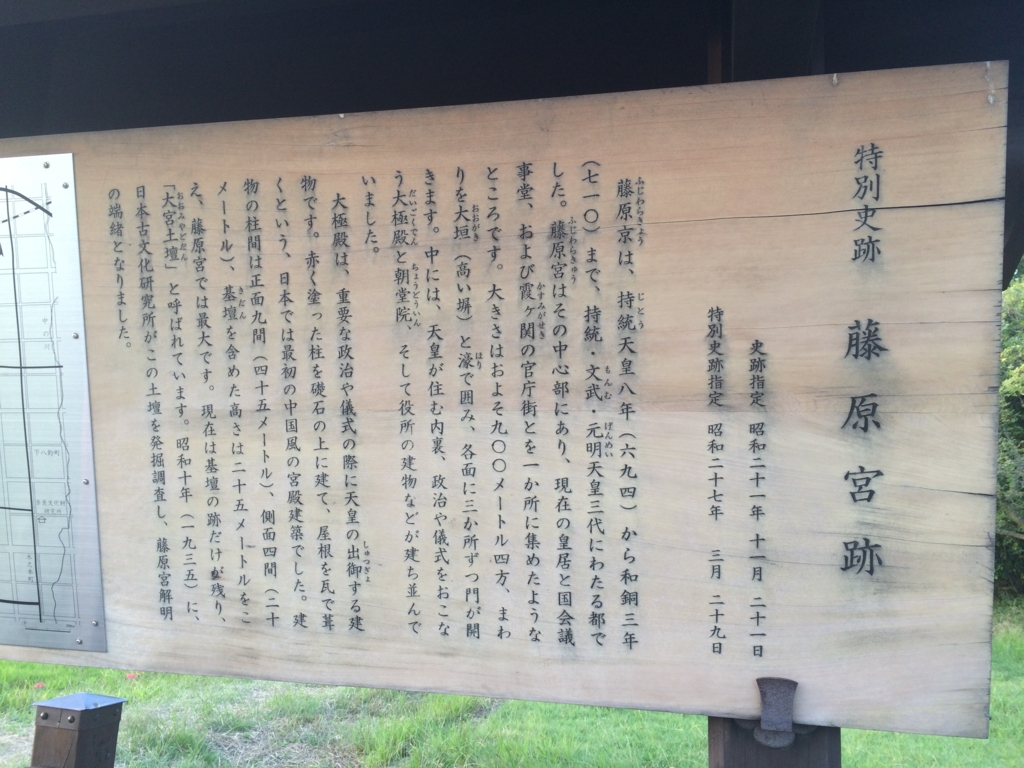 特別史跡　藤原宮跡
史跡指定　昭和二十一年　十一月　二十一日
特別史跡指定　昭和二十七年　三月　二十九日
藤原京は、持統天皇八年（六九四）から和銅三年
（七一〇）まで、持統・文武・元明天皇三代にわたる都で
した。藤原宮はその中心部にあり、現在の皇居と国会議
事堂、および霞ヶ関の官庁街とを一か所に集めたような
ところです。大きさはおよそ九〇〇メートル四方、まわ
りを大垣（高い塀）と濠で囲み、各面に三か所ずつ門が開
きます。中には、天皇が住む内裏、政治や儀式をおこな
う大極殿と朝堂院、そして役所の建物などが建ち並んで
いました。
大極殿は、重要な政治や儀式の際に天皇の出御する建
物です。赤く塗った柱を礎石の上に建て、屋根を瓦で葺
くという、日本では最初の中国風の宮殿建築でした。建
物の柱間は正面九間（四十五メートル）、側面四間（二十
メートル）、基壇を含めた高さは二十五メートルをこ
え、藤原宮では最大です。現在は基壇の跡だけが残り、
「大宮土壇」と呼ばれています。昭和十年（一九三五）に、
日本古文化研究所がこの土壇を発掘調査し、藤原宮解明
の端緒となりました。
下八釣町